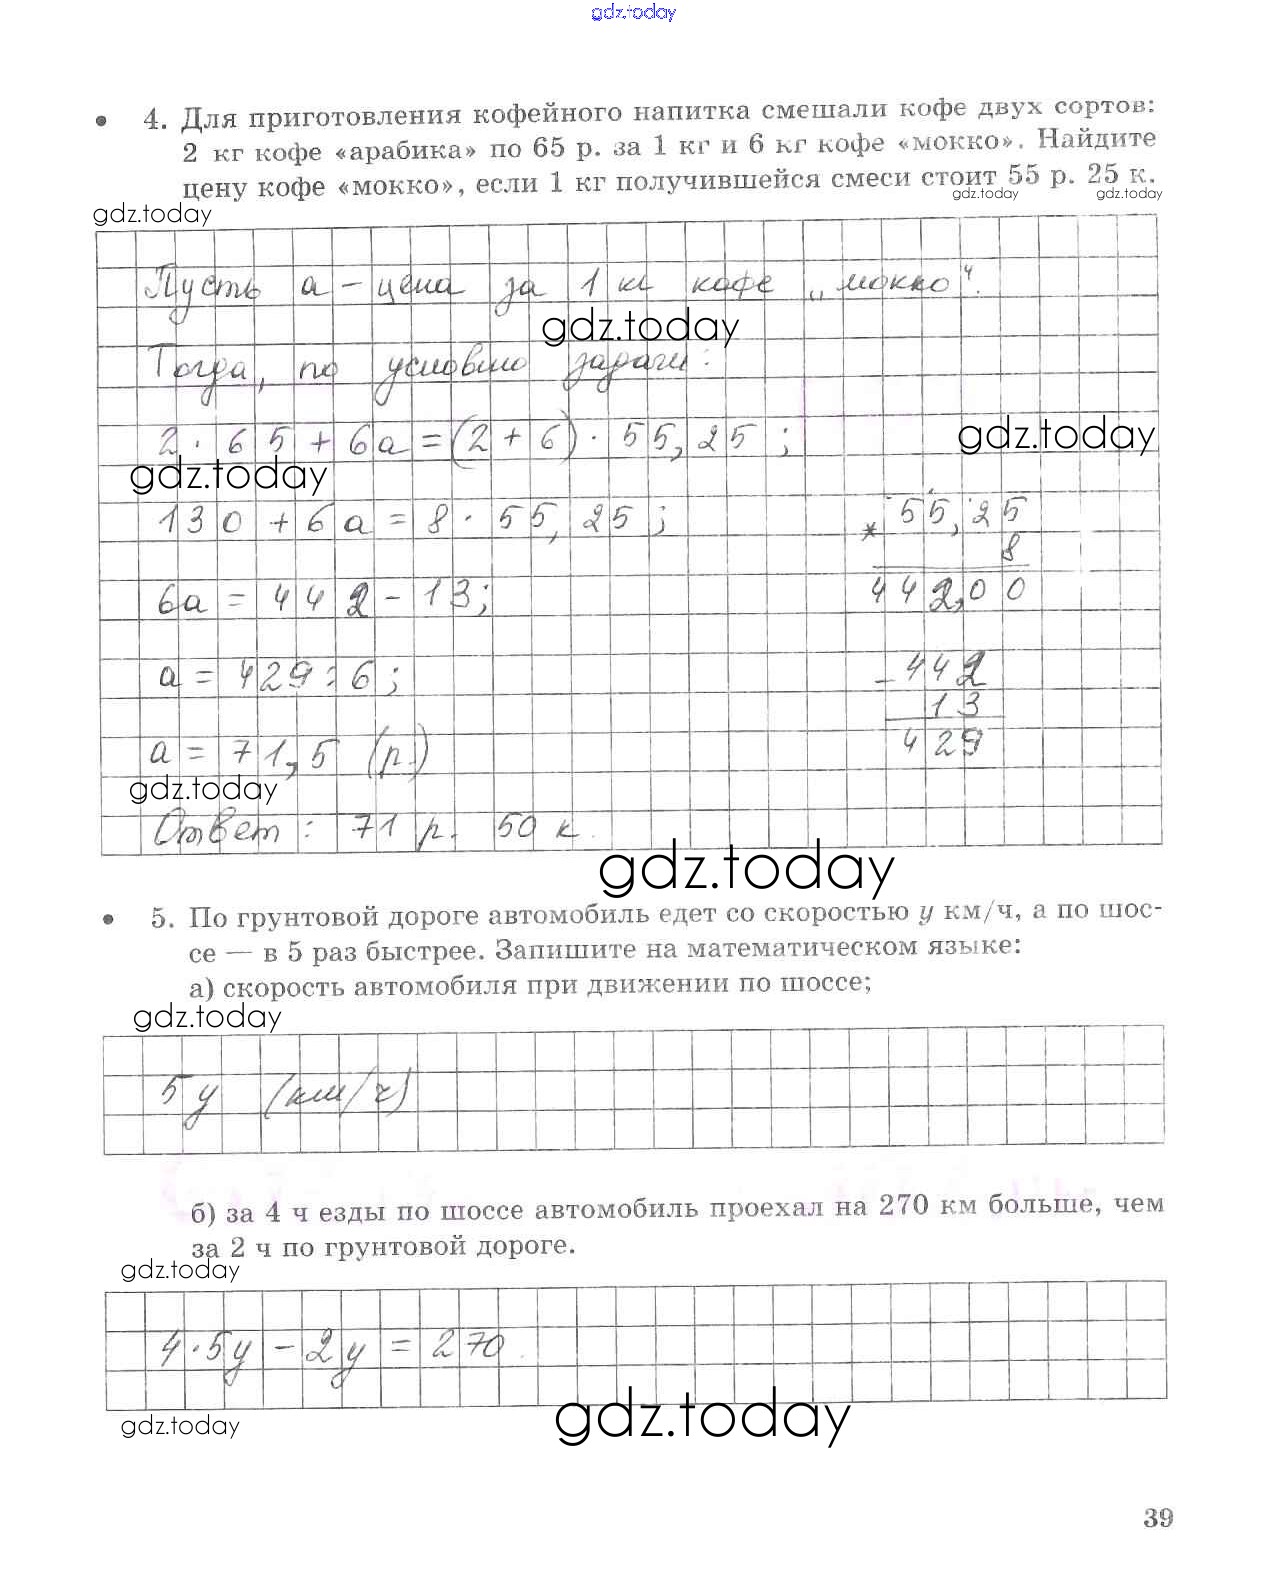 gdz.today
4. Для приготовления кофейного напитка смешали кофе двух сортов:
2 кг кофе «арабика» по 65 р. за 1 кг и 6 кг кофе «мокко». Найдите
цену кофе «мокко», если 1 кг получившейся смеси стоит 55 р. 25 к.
gdz.today gdz.today gdz.today
Пусть а – цена за 1 кг кофе „мокко“.
gdz.today
Тогда, по условию задачи:
2 · 65 + 6а = (2 + 6) · 55,25 ; gdz.today
gdz.today
130 + 6а = 8 · 55,25 ; 55,25
* 8
6а = 442 – 13; 442,00
а = 429 : 6 ; – 442
13
а = 71,5 (р.) 429
gdz.today
Ответ : 71 р. 50 к.
gdz.today
5. По грунтовой дороге автомобиль едет со скоростью y км/ч, а по шос-
се — в 5 раз быстрее. Запишите на математическом языке:
а) скорость автомобиля при движении по шоссе;
gdz.today
5y (км/ч)
б) за 4 ч езды по шоссе автомобиль проехал на 270 км больше, чем
за 2 ч по грунтовой дороге.
gdz.today
4·5y – 2y = 270.
gdz.today
gdz.today
39